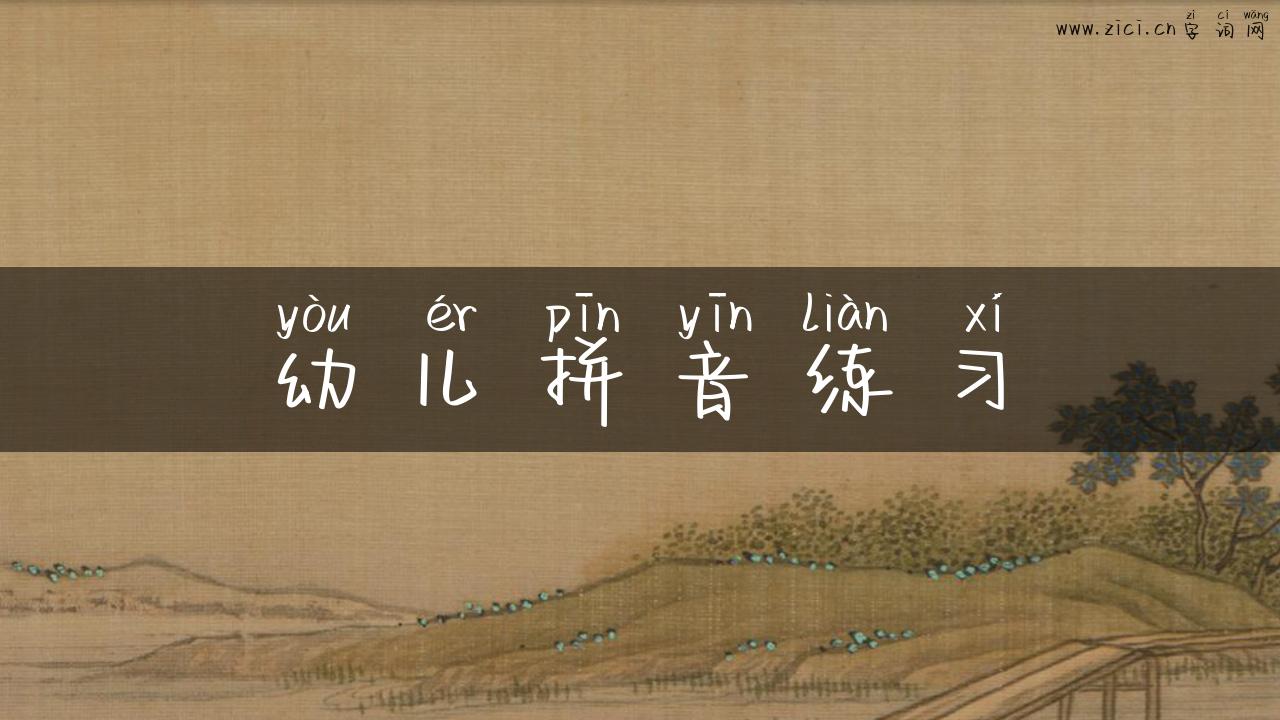 zì cí wǎng
www.zici.cn字词网
yòu ér pīn yīn liàn xí
幼儿拼音练习